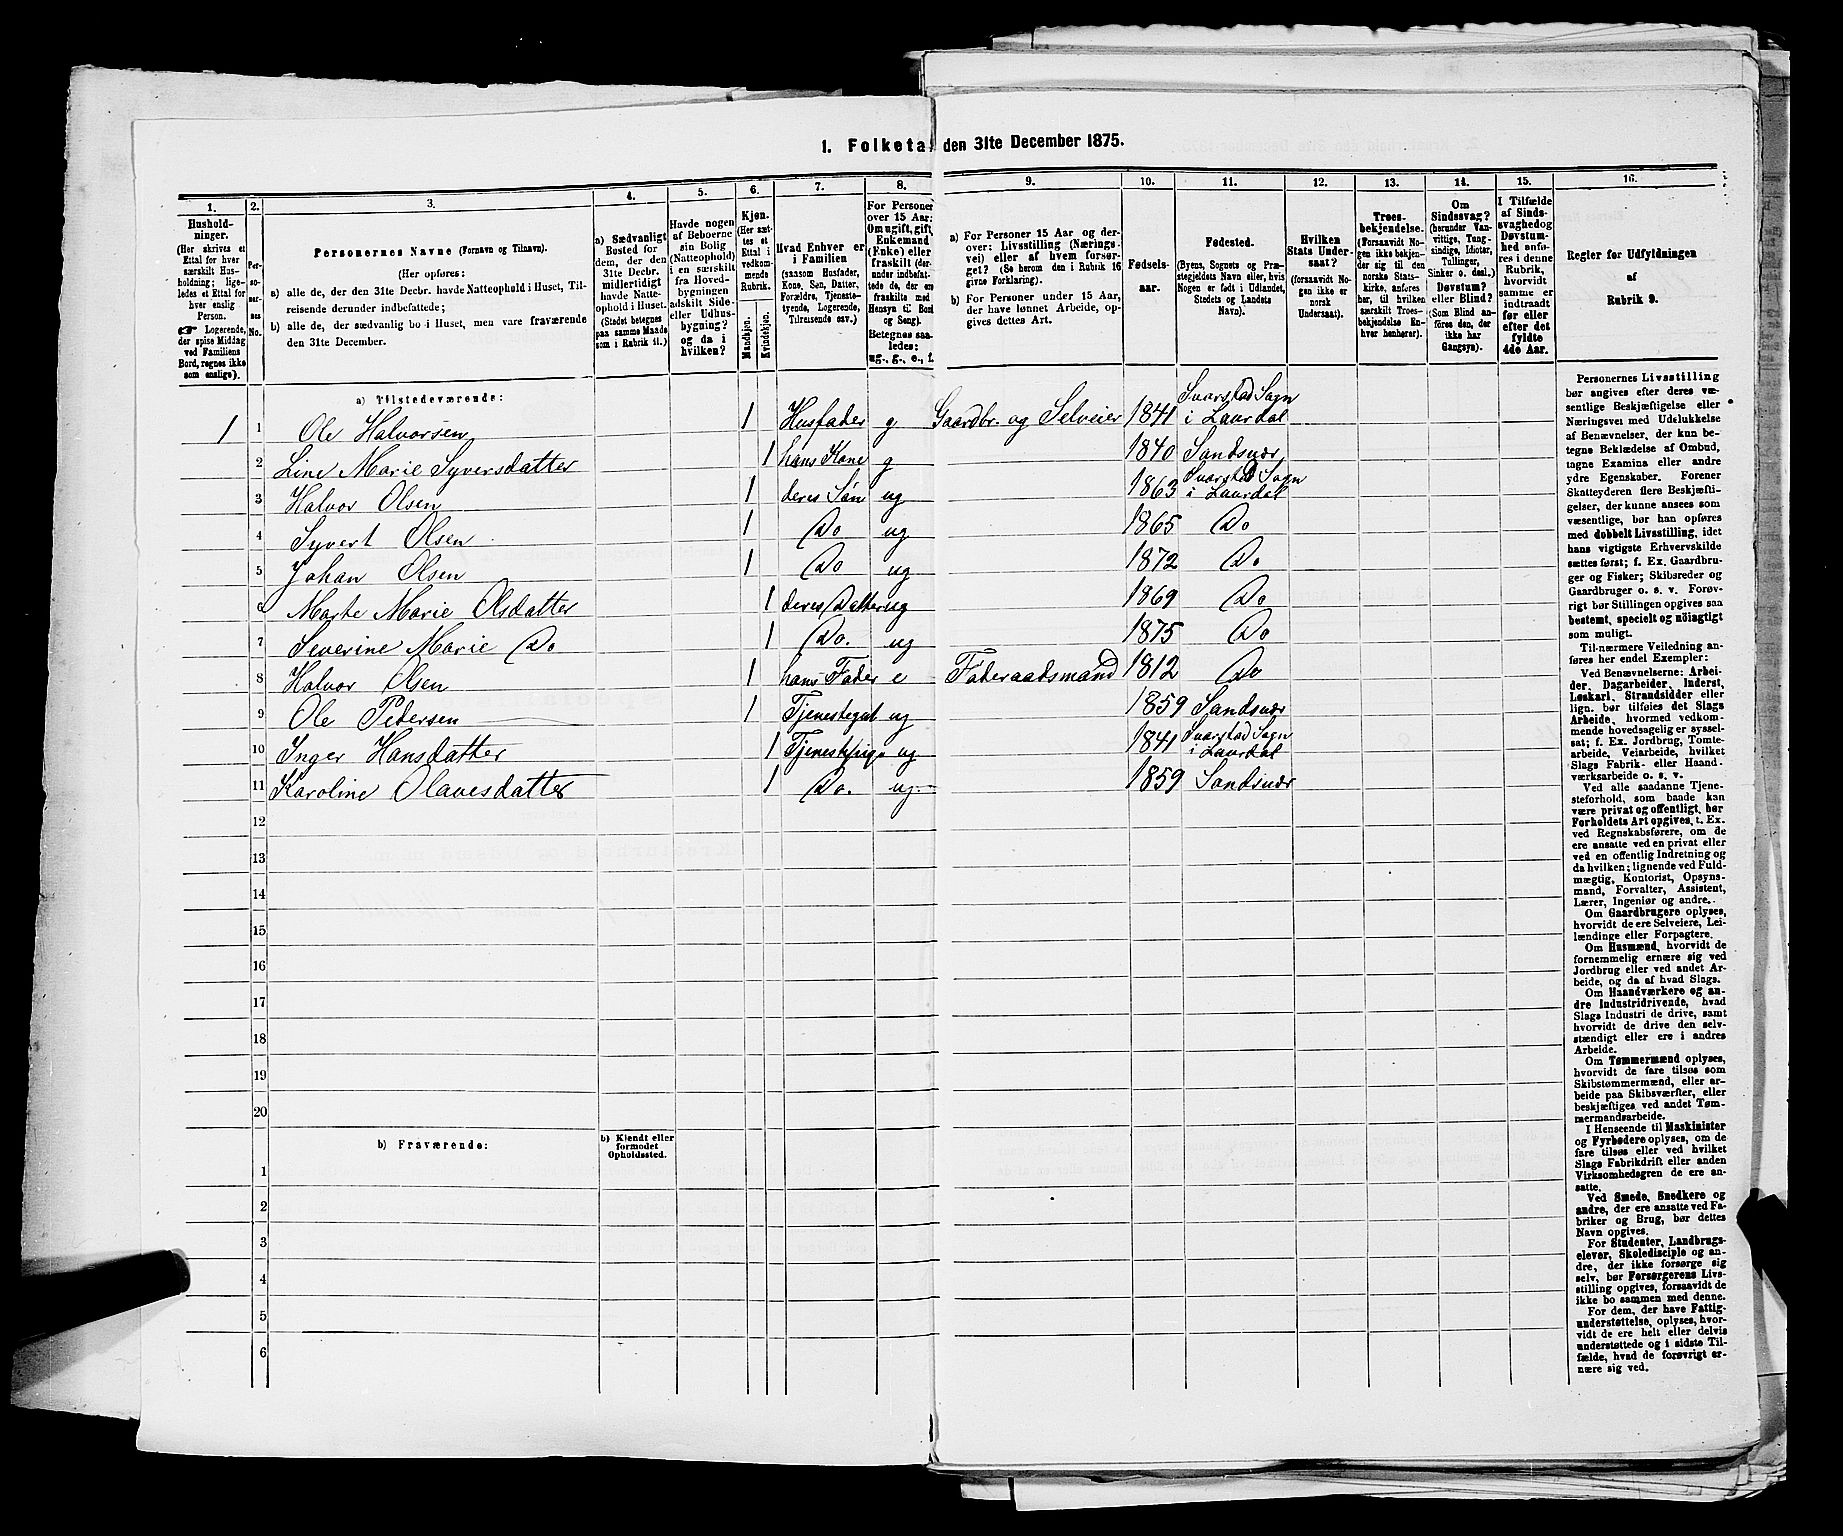 1. Folketal den 31te December 1875.
1.
2.
3.
4.
5.
6.
7.
8.
9.
10.
11.
12.
13.
14.
15.
16.
Hushold-
ninger.
(Her skrives et
Ettal for hver
særskilt Hus-
holdning; lige-
ledes et Ettal for
hver enslig
Person.
☞ Logerende,
der spise Middag
ved Familiens
Bord, regnes ikke
som enslige).
Per-
so-
ner-
nes
No.
Personernes Navne (Fornavn og Tilnavn).
(Her opføres:
a) alle de, der den 31te Decbr. havde Natteophold i Huset, Til-
reisende derunder indbefattede;
b) alle de, der sædvanlig bo i Huset, men vare fraværende
den 31te December.
a) Sædvanligt
Bosted for
dem, der den
31te Decbr.
midlertidigt
havde Natte-
ophold i Huset.
(Stedet betegnes
paa samme Maade
som i Rubrik 11.)
Havde nogen
af Beboerne
sin Bolig
(Natteophold)
i en særskilt
fra Hoved-
bygningen
adskilt Side-
eller Udhus-
bygning?
og da i
hvilken?
Kjøn.
(Her sæt-
tes et
Ettal i
vedkom-
mende
Rubrik.
Mandkjøn.
Kvindekjøn.
Hvad Enhver er
i Familien
(saasom Husfader,
Kone, Søn, Datter,
Forældre, Tjeneste-
tyende, Logerende,
Tilreisende osv.)
For Personer
over 15 Aar:
Om ugift, gift,
Enkemand
(Enke) eller
fraskilt (der-
under indbefat-
tede de, der ere
fraskilte med
Hensyn til Bord
og Seng).
Betegnes saa-
ledes:
ug., g., e., f.
a) For Personer 15 Aar og der-
over: Livsstilling (Nærings-
vei) eller af hvem forsør-
get? (Se herom den i Rubrik 16
givne Forklaring).
b) For Personer under 15 Aar,
der have lønnet Arbeide, op-
gives dettes Art.
Fødsels-
aar.
Fødested.
(Byens, Sognets og Præ-
stegjeldets Navn eller, hvis
Nogen er født i Udlandet,
Stedets og Landets
Navn).
Hvilken
Stats Under-
saat?
(forsaavidt No-
gen ikke er
norsk
Undersaat).
Troes-
bekjendelse.
(Forsaavidt No-
gen ikke bekjen-
der sig til den
norske Stats-
kirke, anføres
her, til hvilken
særskilt Troes-
bekjendelse En-
hver henhører).
Om
Sindssvag?
(herunder Van-
vittige, Tung-
sindige, Idioter,
Tullinger,
Sinker o. desl.)
Døvstum?
eller Blind?
(Som Blind an-
føres den, der
ikke har
Gangsyn).
I Tilfælde
af Sinds-
svaghed og
Døvstum-
hed anfø-
res i denne
Rubrik,
hvorvidt
samme er
indtraadt
før eller
efter det
fyldte
4de Aar.
Regler for Udfyldningen
af
Rubrik 9.
a) Tilstedeværende:
1 1 Ole Halvorsen 1 Husfader g Gaardbr. og Selveier 1841 Svarstad Sogn i Laurdal
2 Line Marie Syversdatter 1 hans Kone g 1840 Sandsvær
3 Halvor Olsen 1 deres Søn ug 1863 Svarstad Sogn i Laurdal
4 Syvert Olsen 1 Do ug 1865 Do
5 Johan Olsen 1 Do ug 1872 Do
6 Marte Marie Olsdatter 1 deres Datter ug 1869 Do
7 Severine Marie Do 1 Do. ug 1875 Do
8 Halvor Olsen 1 hans Fader e Føderaadsmand 1812 Do
9 Ole Pedersen 1 Tjenestegut ug 1859 Sandsvær
10 Inger Hansdatter 1 Tjenestepige ug 1841 Svarstad Sogn i Laurdal
11 Karoline Olavesdatter 1 Do. ug. 1859 Sandsvær
12
13
14
15
16
17
18
19
20
b) Fraværende:
b) Kjendt eller
formodet
Opholdssted.
1
2
3
4
5
6
Personernes Livsstilling
bør angives efter deres væ-
sentlige Beskjæftigelse eller
Næringsvei med Udelukkelse
af Benævnelser, der kun be-
tegne Beklædelse af Ombud,
tagne Examina eller andre
ydre Egenskaber. Forener
Skatteyderen flere Beskjæfti-
gelser, der kunne ansees som
væsentlige, bør han opføres
med dobbelt Livsstilling, idet
hans vigtigste Erhvervskilde
sættes først; f. Ex. Gaardbru-
ger og Fisker; Skibsreder og
Gaardbruger o. s. v. Forøv-
rigt bør Stillingen opgives saa
bestemt, specielt og nöiagtigt
som muligt.
Til nærmere Veiledning an-
føres her endel Exempler:
Ved Benævnelserne: Arbei-
der, Dagarbeider, Inderst,
Løskarl, Strandsidder eller
lign. bør tilføies det Slags
Arbeide, hvormed vedkom-
mende hovedsagelig er syssel-
sat; f. Ex. Jordbrug, Tomte-
arbeide, Veiarbeide, hvilket
Slags Fabrik- eller Haand-
værksarbeide o. s. v.
Ved alle saadanne Tjene-
steforhold, som baade kan
være privat og offentligt, bør
Forholdets Art opgives, t. Ex.
ved Regnskabsførere, om de
ere ansatte ved en privat eller
ved en offentlig Indretning og
da hvilken; lignende ved Fuld-
mægtig, Kontorist, Opsyns-
mand, Forvalter, Assistent,
Lærer, Ingeniør og andre.
Om Gaardbrugere oplyses,
hvorvidt de ere Selveiere, Lei-
lændinge eller Forpagtere.
Om Husmænd, hvorvidt de
fornemmelig ernære sig ved
Jordbrug eller ved andet Ar-
beide, og da af hvad Slags.
Om Haandværkere og an-
dre Industridrivende, hvad
Slags Industri de drive, samt
hvorvidt de drive den selv-
stændigt eller ere i andres
Arbeide.
Om Tømmermænd oplyses,
hvorvidt de fare tilsøs som
Skibstømmermænd, eller ar-
beide paa Skibsværfter, eller
beskjæftiges ved andet Tøm-
mermandsarbeide.
I Henseende til Maskinister
og Fyrbødere oplyses, om de
fare tilsøs eller ved hvilket
Slags Fabrikdrift eller anden
Virksomhedsgren de ere an-
satte.
Ved Smede, Snedkere og
andre, der ere ansatte ved Fa-
briker og Brug, bør dettes
Navn opgives.
For Studenter, Landbrugs-
elever, Skoledisciple og an-
dre, der ikke forsørge sig
selv, bør Forsørgerens Livs-
stilling opgives, forsaavidt de
ikke bo sammen med denne.
For dem, der have Fattig-
understøttelse, oplyses, hvor-
vidt de ere helt eller delvis
understøttede og i sidste Til-
fælde, hvad de forøvrigt er-
nære sig ved.